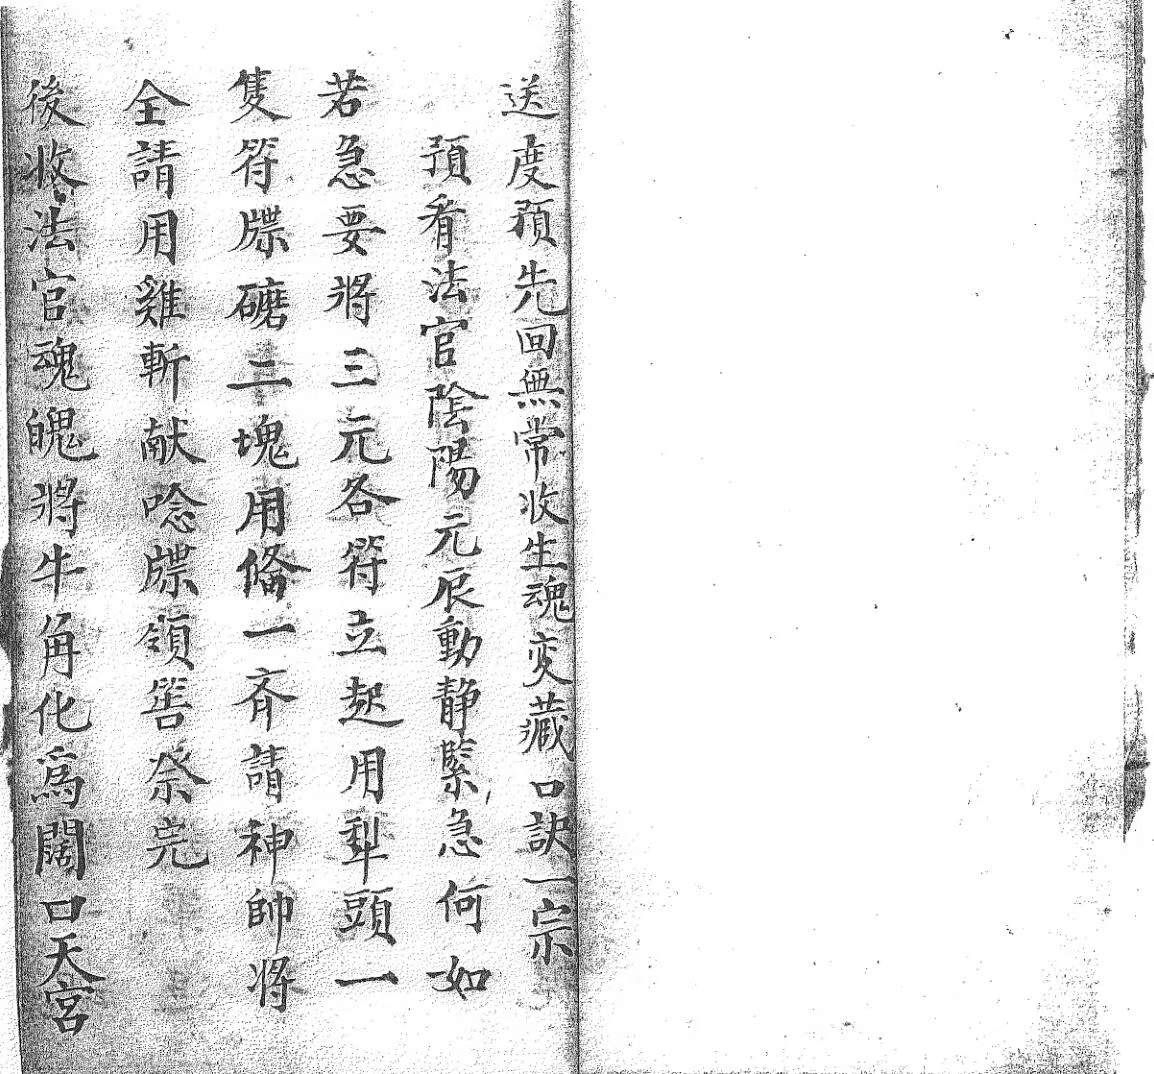 送度預先回無常收生魂变藏口訣一宗
預看法官陰陽元辰動静緊急何如
若急要將三元各符立起用犁頭一
隻符牒磄二塊用俻一齊請神帅将
全請用雞斬献唸牒領筶祭完
後收法官魂魄將牛角化為闊口天宮